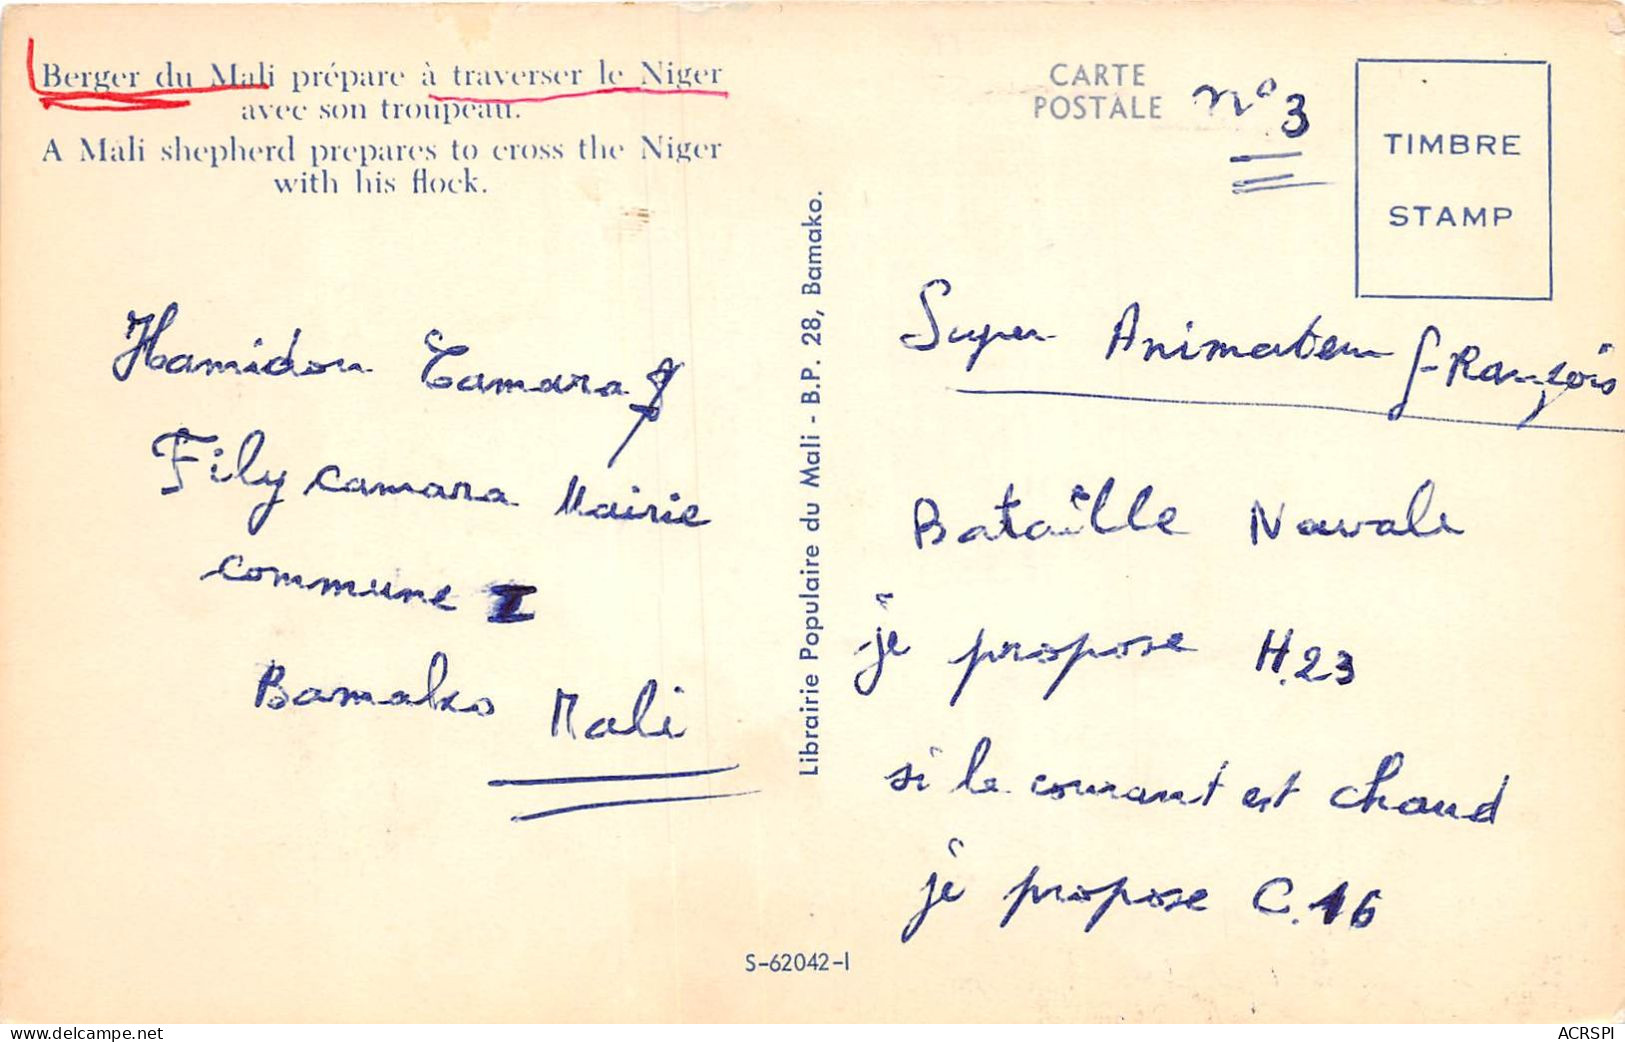 Berger du Mali prépare à traverser le Niger
avec son troupeau.
A Mali shepherd prepares to cross the Niger
with his flock.
CARTE
POSTALE
n° 3
TIMBRE
STAMP
Hamidou Camara
Fily camara Mairie
commune I
Bamako Mali
Librairie Populaire du Mali - B.P. 28, Bamako.
Super Animateur François
Bataille Navale
je propose H.23
si le courant est chaud
je propose C.16
S-62042-I
www.delcampe.net
ACRSPI